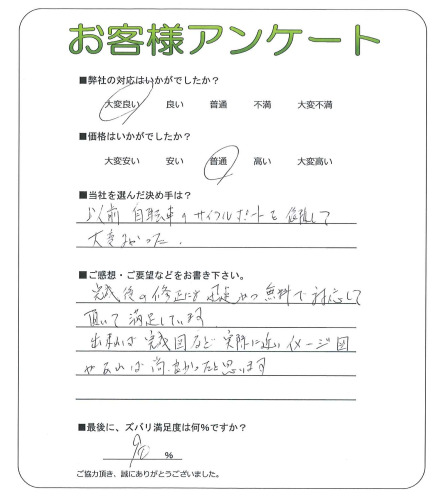 お客様アンケート
■弊社の対応はいかがでしたか?
大変良い 良い 普通 不満 大変不満
■価格はいかがでしたか?
大変安い 安い 普通 高い 大変高い
■当社を選んだ決め手は?
以前 自転車のサイクルポートを 依頼して
大変よかった.
■ご感想・ご要望などをお書き下さい。
完成後の修正にも 迅速かつ 無料で対応して
頂いて 満足しています.
出来れば 完成図など 実際に近い イメージ図
があれば 尚.良かったと思います
■最後に、ズバリ満足度は何%ですか?
90 %
ご協力頂き、誠にありがとうございました。